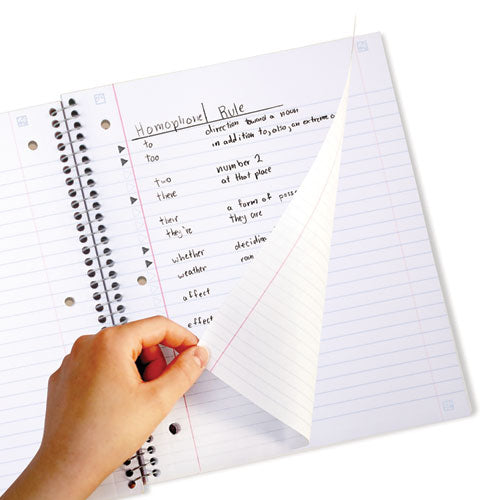 Homophone Rule
to direction toward a noun
too in addition to, also, an extreme o
two number 2
there at that place
their a form of posse
they're they are
whether decidin
weather
affect
effect